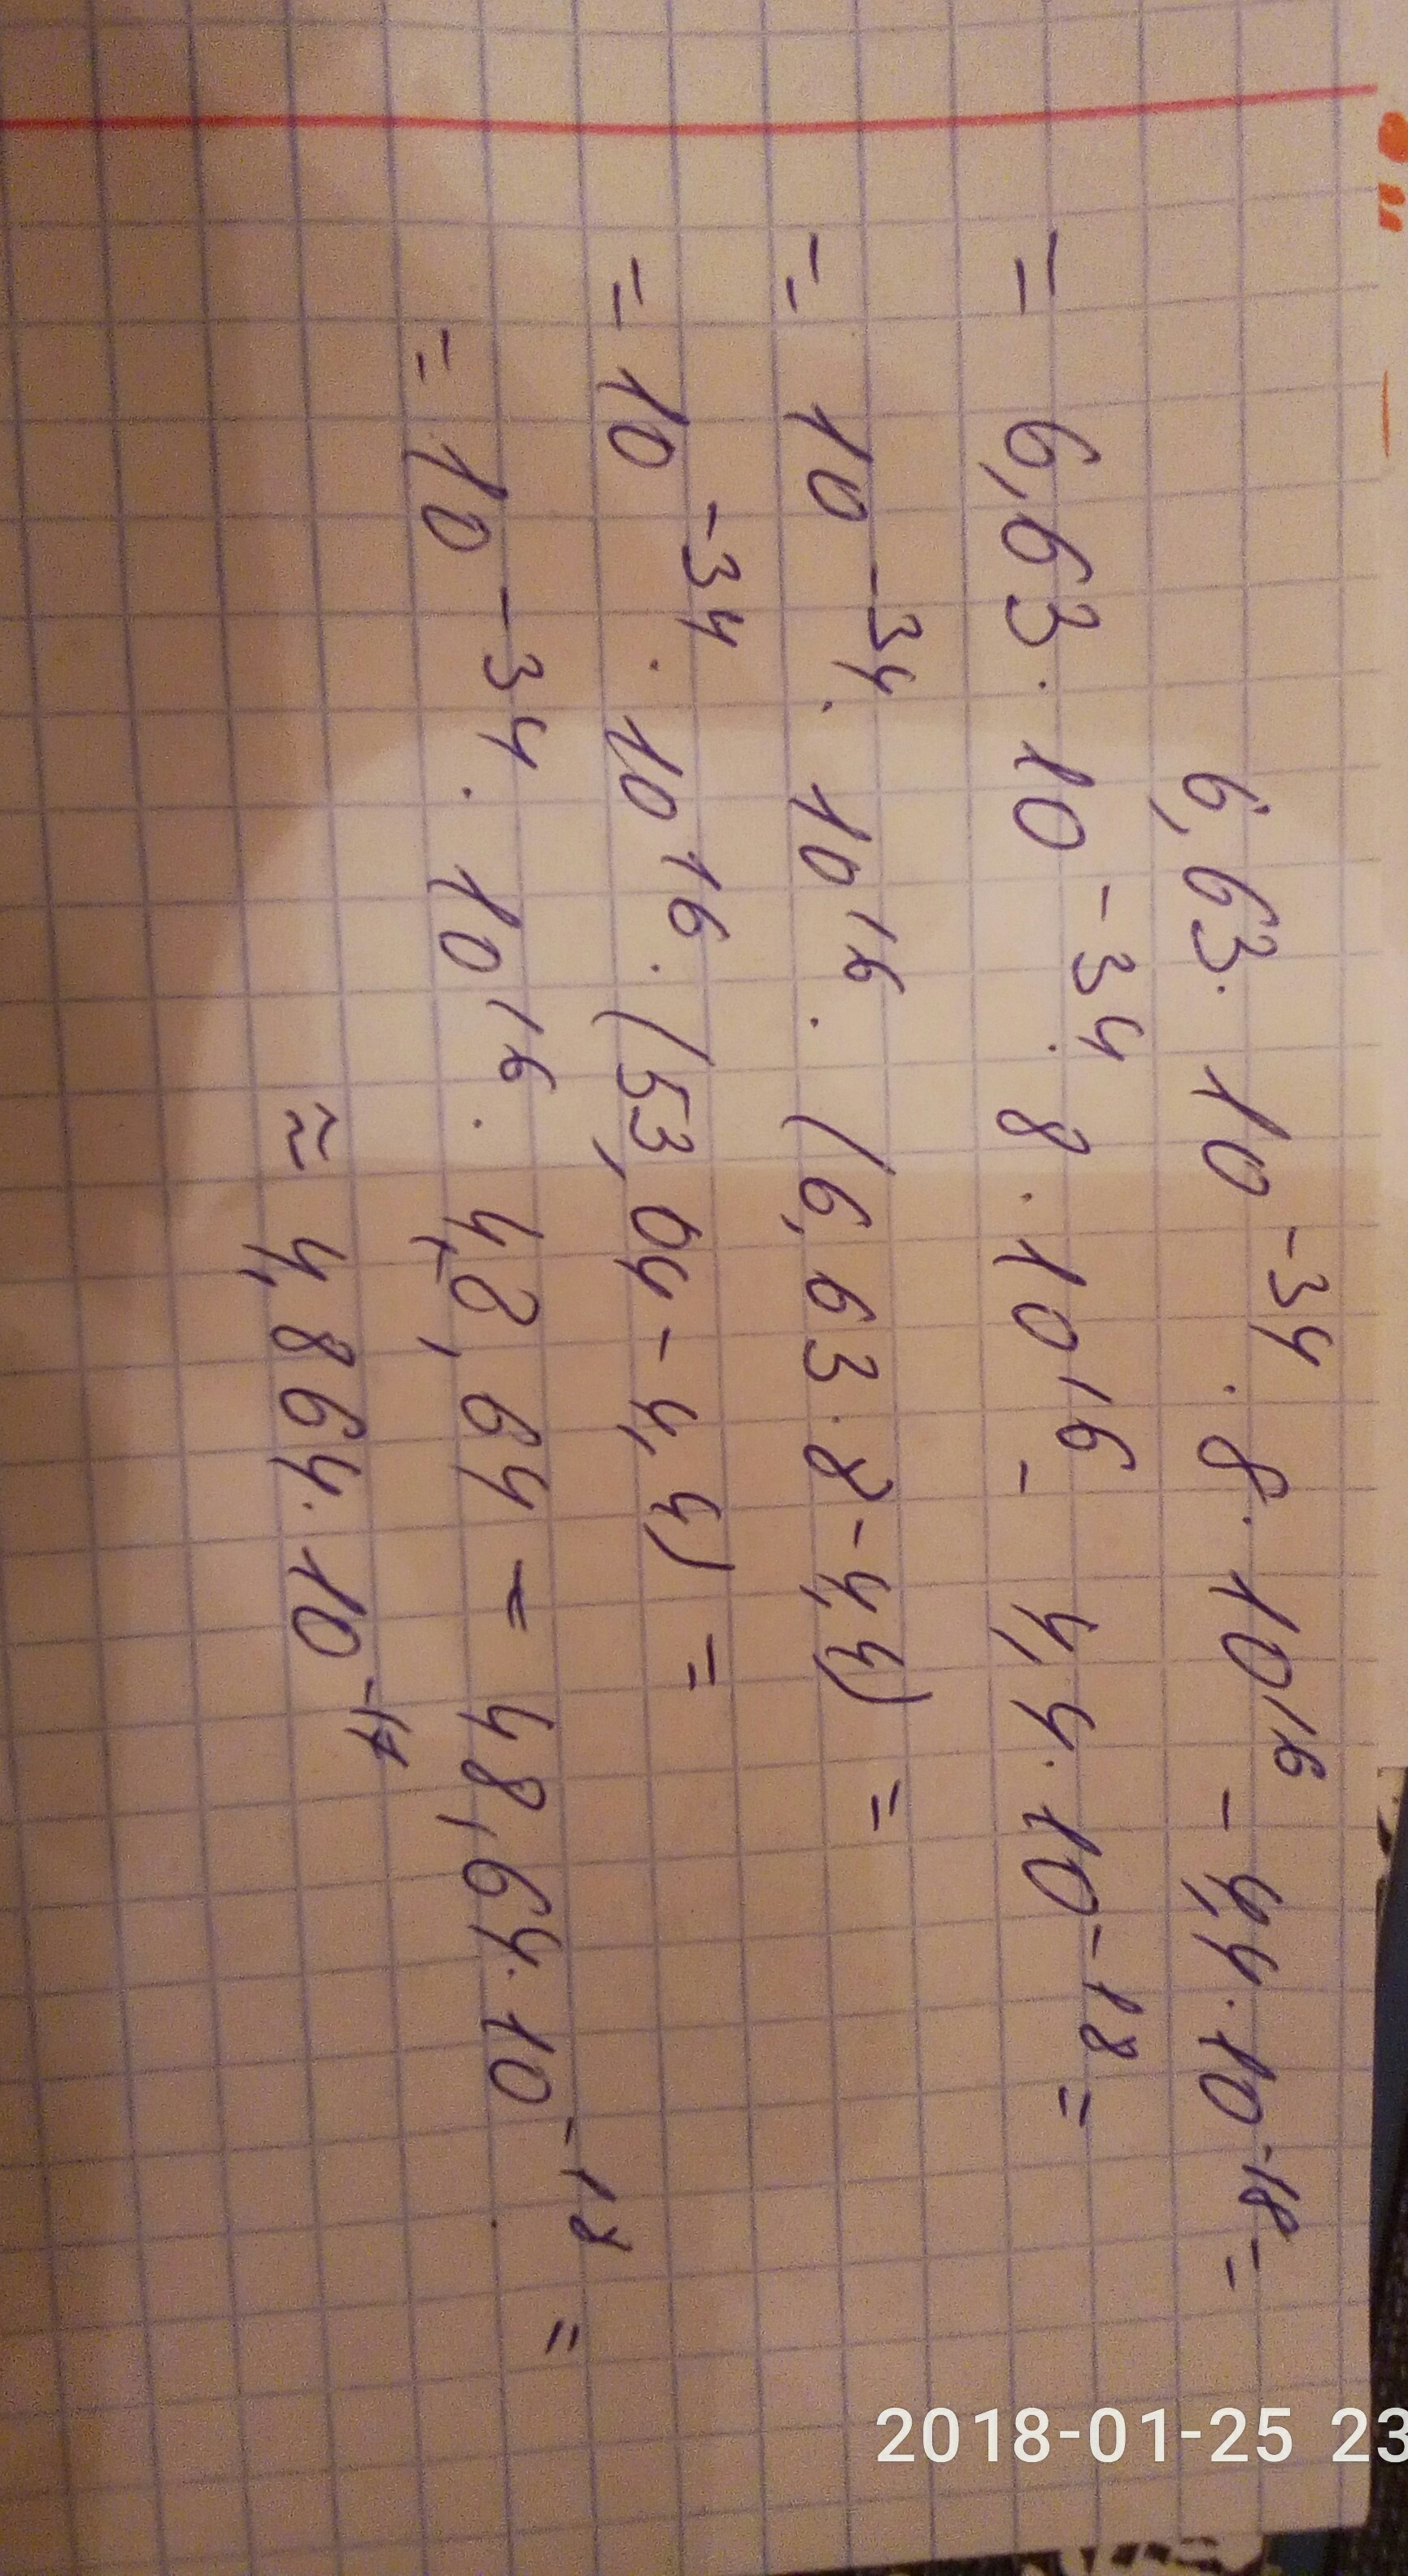 6,63 · 10⁻³⁴ · 8 · 10¹⁶ - 4,4 · 10⁻¹⁸ =
= 6,63 · 10⁻³⁴ · 8 · 10¹⁶ - 4,4 · 10⁻¹⁸ =
= 10⁻³⁴ · 10¹⁶ · (6,63 · 8 - 4,4) =
= 10⁻³⁴ · 10¹⁶ · (53,04 - 4,4) =
= 10⁻³⁴ · 10¹⁶ · 48,64 = 48,64 · 10⁻¹⁸ =
≈ 4,864 · 10⁻¹⁷
2018-01-25 23